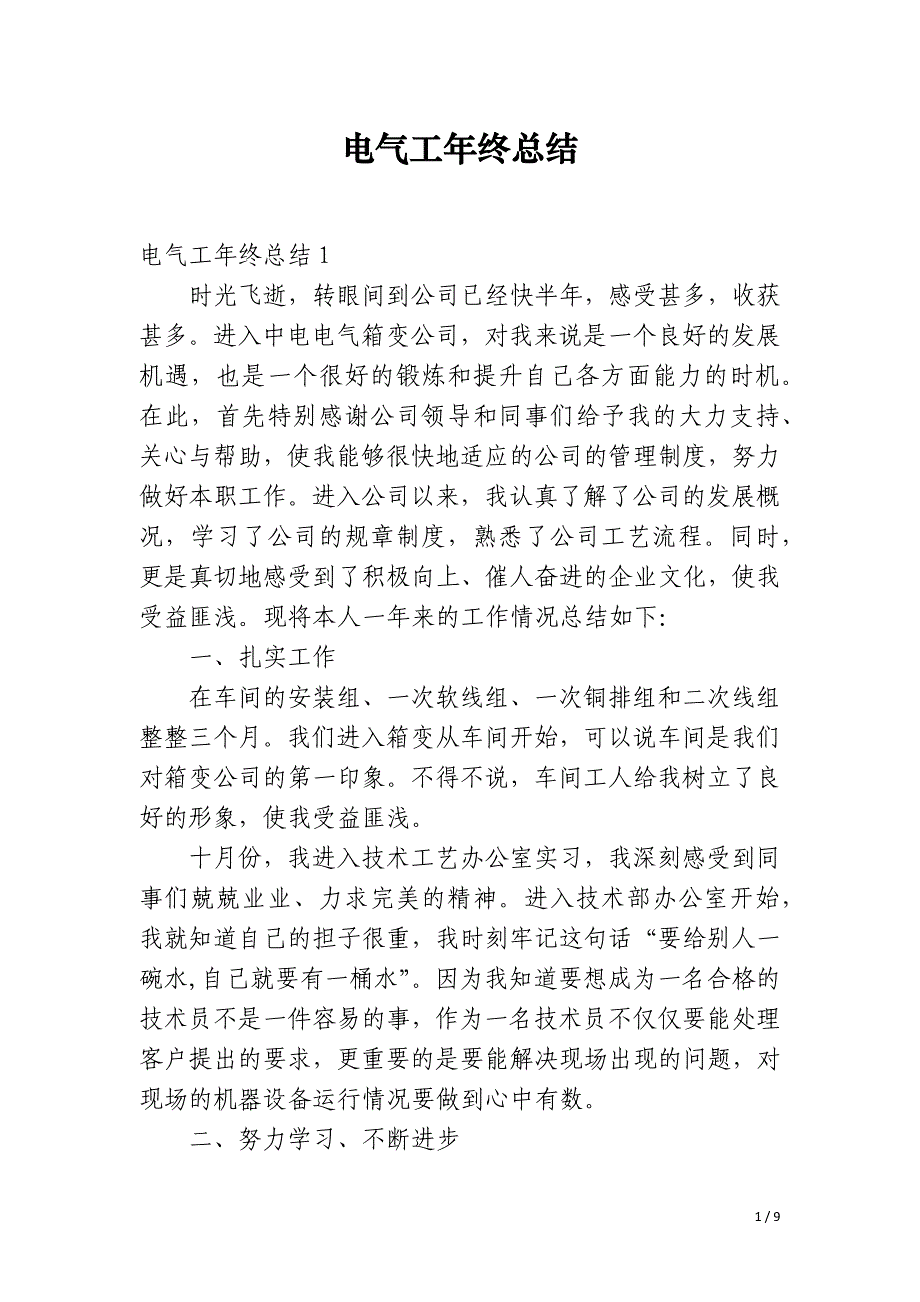 电气工年终总结
电气工年终总结 1
时光飞逝，转眼间到公司已经快半年，感受甚多，收获
甚多。进入中电电气箱变公司，对我来说是一个良好的发展
机遇，也是一个很好的锻炼和提升自己各方面能力的时机。
在此，首先特别感谢公司领导和同事们给予我的大力支持、
关心与帮助，使我能够很快地适应的公司的管理制度，努力
做好本职工作。进入公司以来，我认真了解了公司的发展概
况，学习了公司的规章制度，熟悉了公司工艺流程。同时，
更是真切地感受到了积极向上、催人奋进的企业文化，使我
受益匪浅。现将本人一年来的工作情况总结如下：
一、扎实工作
在车间的安装组、一次软线组、一次铜排组和二次线组
整整三个月。我们进入箱变从车间开始，可以说车间是我们
对箱变公司的第一印象。不得不说，车间工人给我树立了良
好的形象，使我受益匪浅。
十月份，我进入技术工艺办公室实习，我深刻感受到同
事们兢兢业业、力求完美的精神。进入技术部办公室开始，
我就知道自己的担子很重，我时刻牢记这句话“要给别人一
碗水,自己就要有一桶水”。因为我知道要想成为一名合格的
技术员不是一件容易的事，作为一名技术员不仅仅要能处理
客户提出的要求，更重要的是要能解决现场出现的问题，对
现场的机器设备运行情况要做到心中有数。
二、努力学习、不断进步
1 / 9